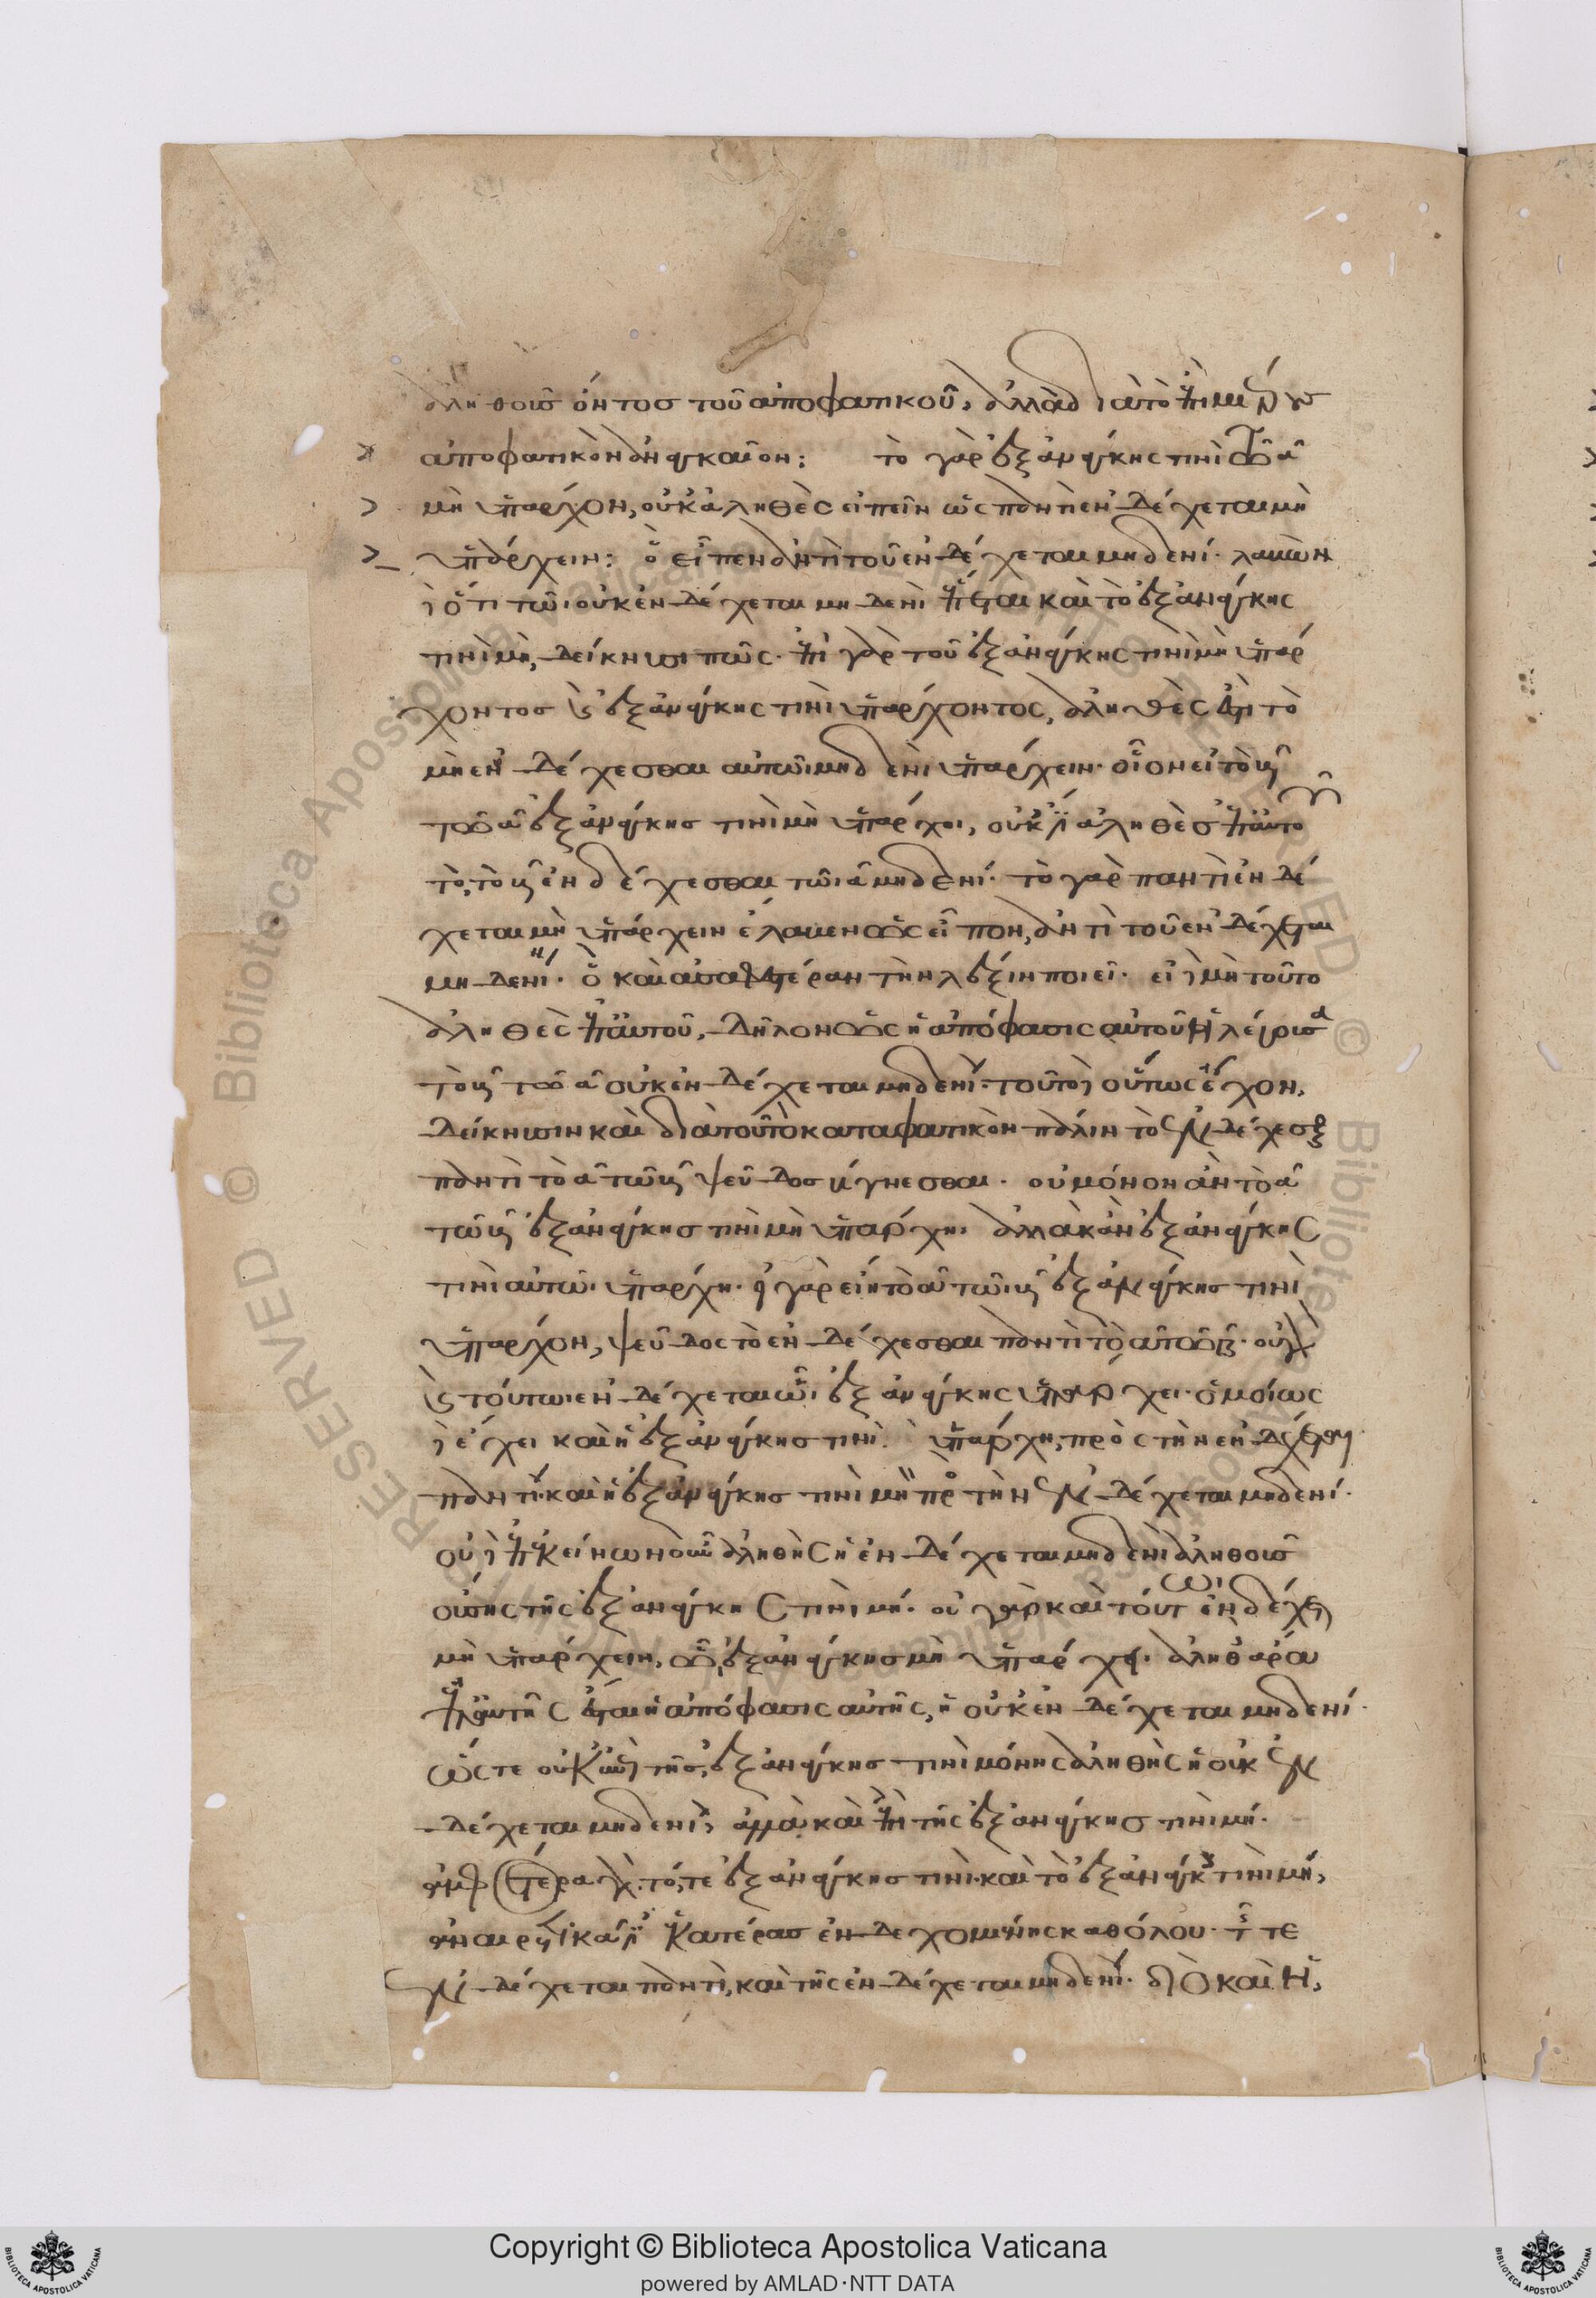 ἀληθοῦς ὄντος τοῦ ἀποφατικοῦ, ἀλλὰ διὰ τὸ ἐπὶ μέρους
ἀποφατικὸν ἀναγκαῖον: τὸ γὰρ ἐξ ἀνάγκης τινὶ τῶ β α
μὴ ὑπάρχον, οὐκ ἀληθὲς εἰπεῖν ὡς παντὶ ἐνδέχεται μὴ
ὑπάρχειν: ὃ εἶπεν ἀντὶ τοῦ ἐνδέχεται μηδενί. λαβὼν
δὲ ὅτι τῶι οὐκ ἐνδέχεται μηδενὶ ἕπεται καὶ τὸ ἐξ ἀνάγκης
τινὶ μὴ, δείκνυσι πῶς. ἐπὶ γὰρ τοῦ ἐξ ἀνάγκης τινὶ μὴ ὑπάρ
χοντος καὶ ἐξ ἀνάγκης τινὶ ὑπάρχοντος, ἀληθές ἐστι τὸ
μὴ ἐνδέχεσθαι αὐτῶι μηδενὶ ὑπάρχειν. οἷον εἰ τὸ β
τῶ α ἐξ ἀνάγκης τινὶ μὴ ὑπάρχοι, οὐκ ἔστιν ἀληθὲς ἐπ' αὐτῶν
τὸ, τὸ β ἐνδέχεσθαι τῶι α μηδενί. τὸ γὰρ παντὶ ἐνδέ
χεται μὴ ὑπάρχειν ἐλάβενως εἶπον, ἀντὶ τοῦ ἐνδέχεται
μηδενί. ὃ καὶ ἀσαφεστέραν τὴν λέξιν ποιεῖ. εἰ δὲ μὴ τοῦτο
ἀληθὲς ἐπ' αὐτοῦ, δῆλον ὡς ἡ ἀπόφασις αὐτοῦ ἡ λέγουσα
τὸ β τῶ α οὐκ ἐνδέχεται μηδενί. τοῦτο δὲ οὕτως ἔχον,
δείκνυσιν καὶ διὰ τοῦτο καταφατικὸν πάλιν τὸ ἐνδέχεσθαι
παντὶ τὸ α τῶ β ψεῦδος γίγνεσθαι. οὐ μόνον ἂν τὸ α
τῶ β ἐξ ἀνάγκης τινὶ μὴ ὑπάρχηι ἀλλὰ κἂν ἐξ ἀνάγκης
τινὶ αὐτῶ ὑπάρχη. εἰ γὰρ εἴη τὸ α τῶι β ἐξ ἀνάγκης τινὶ
ὑπάρχον, ψεῦδος τὸ ἐνδέχεσθαι παντὶ τὸ α τῶ β. οὐ γὰρ
καὶ τούτωι ἐνδέχεται ὧι ἐξ ἀνάγκης ὑπάρχει. ὁμοίως
δὲ ἔχει καὶ ἡ ἐξ ἀνάγκης τινὶ ὑπάρχη, πρὸς τὴν ἐνδέχεται
παντί. καὶ ἡ ἐξ ἀνάγκης τινὶ μὴ πρὸς τὴν ἐνδέχεται μηδενί.
οὐ δὲ ἐπ' ἐκείνων ἀληθὴς ἡ ἐνδέχεται μηδενὶ ἀληθοῦς
οὔσης τῆς ἐξ ἀνάγκης τινὶ μή. οὐ γὰρ καὶ τούτωι ἐνδέχεται
μὴ ὑπάρχειν, ὧ ἐξ ἀνάγκης μὴ ὑπάρχει. ἀληθὴς ἄρα
ἐπ' αὐτῆς ἔσται ἡ ἀπόφασις αὐτῆς, ἡ οὐκ ἐνδέχεται μηδενί.
ὥστε οὐκ ἐπὶ τῆς ἐξ ἀνάγκης τινὶ μόνης ἀληθὴς ἡ οὐκ ἐν
δέχεται μηδενί, ἀλλὰ καὶ ἐπὶ τῆς ἐξ ἀνάγκης τινὶ μή.
ἀμφότερα γὰρ τό, τε ἐξ ἀνάγκης τινὶ. καὶ τὸ ἐξ ἀνάγκης τινὶ μή,
ἀναιρετικά ἐστιν ἑκατέρας ἐνδεχομένης καθόλου. τῆς τε
ἐνδέχεται παντὶ, καὶ τῆς ἐνδέχεται μηδενί. διὸ καὶ ἡ,
Copyright © Biblioteca Apostolica Vaticana
powered by AMLAD·NTT DATA